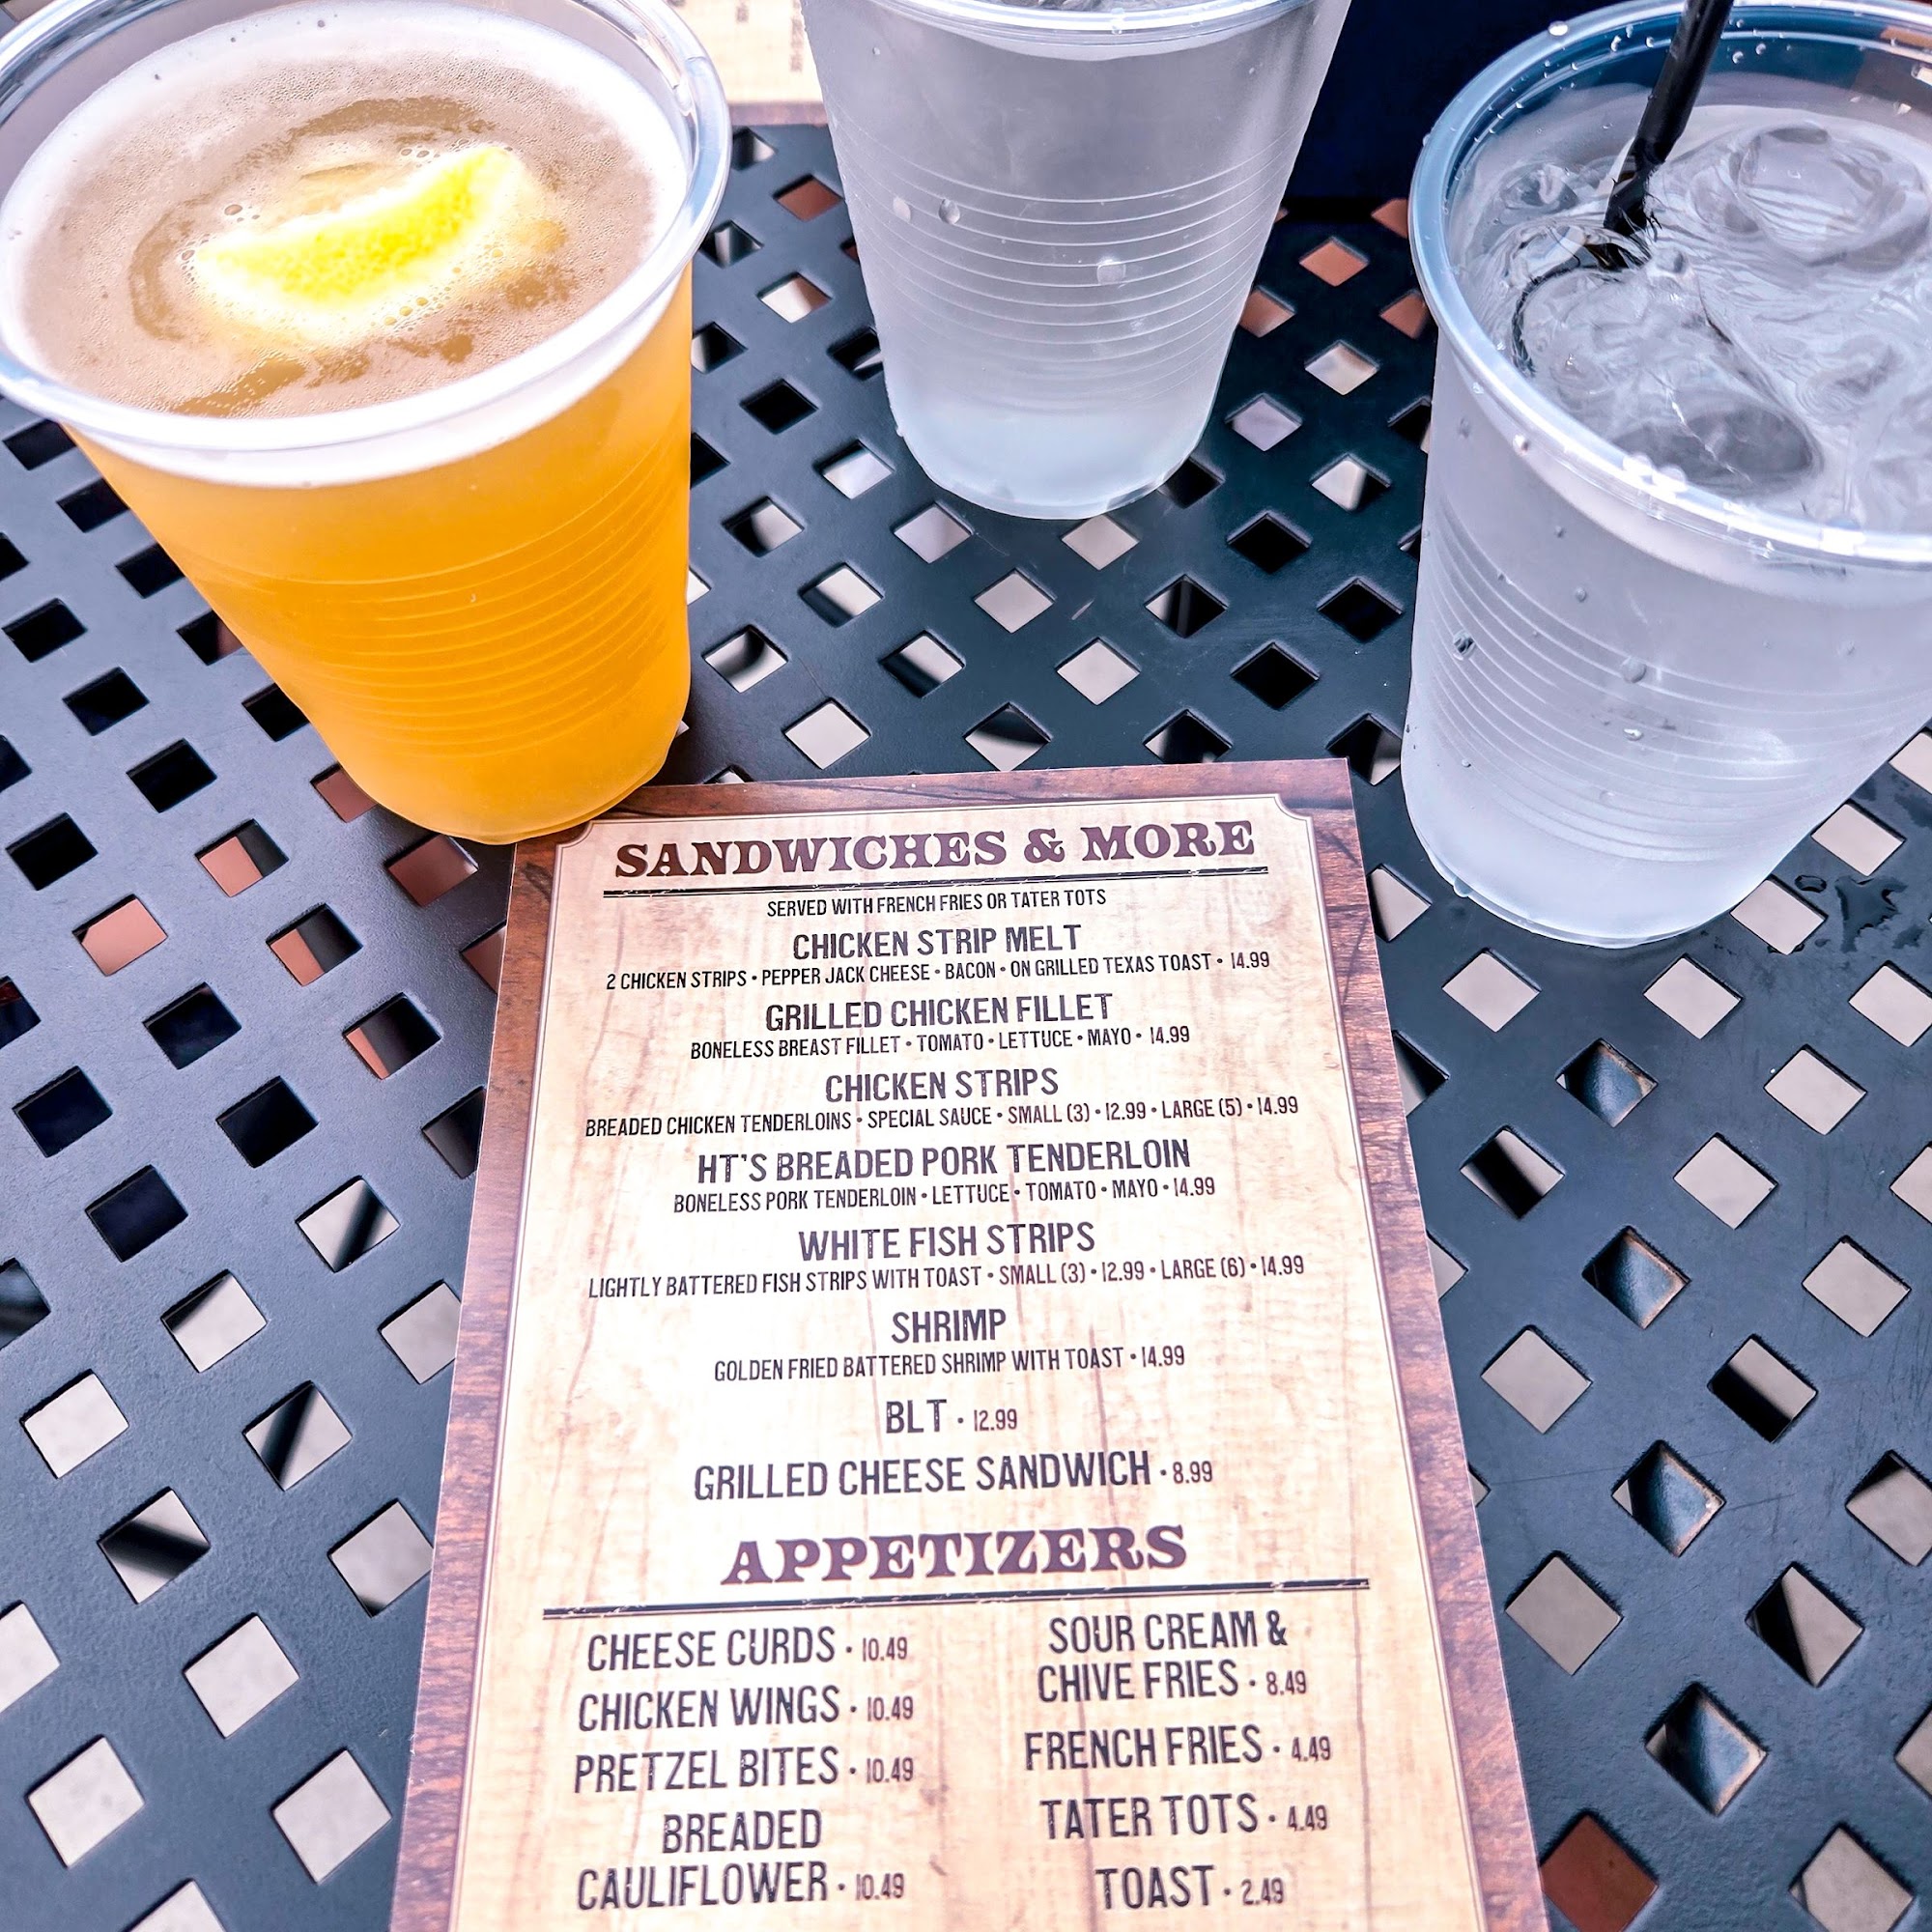 SANDWICHES & MORE
SERVED WITH FRENCH FRIES OR TATER TOTS
CHICKEN STRIP MELT
2 CHICKEN STRIPS • PEPPER JACK CHEESE • BACON • ON GRILLED TEXAS TOAST • 14.99
GRILLED CHICKEN FILLET
BONELESS BREAST FILLET • TOMATO • LETTUCE • MAYO • 14.99
CHICKEN STRIPS
BREADED CHICKEN TENDERLOINS • SPECIAL SAUCE • SMALL (3) • 12.99 • LARGE (5) • 14.99
HT'S BREADED PORK TENDERLOIN
BONELESS PORK TENDERLOIN • LETTUCE • TOMATO • MAYO • 14.99
WHITE FISH STRIPS
LIGHTLY BATTERED FISH STRIPS WITH TOAST • SMALL (3) • 12.99 • LARGE (6) • 14.99
SHRIMP
GOLDEN FRIED BATTERED SHRIMP WITH TOAST • 14.99
BLT • 12.99
GRILLED CHEESE SANDWICH • 8.99
APPETIZERS
CHEESE CURDS • 10.49
CHICKEN WINGS • 10.49
PRETZEL BITES • 10.49
BREADED
CAULIFLOWER • 10.49
SOUR CREAM &
CHIVE FRIES • 8.49
FRENCH FRIES • 4.49
TATER TOTS • 4.49
TOAST • 2.49